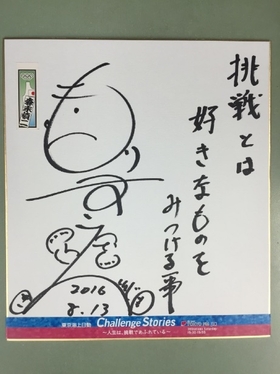 挑戦とは
好きなものを
みつける事
2016
8.13
東京海上日動 Challenge Stories
～人生は、挑戦であふれている～